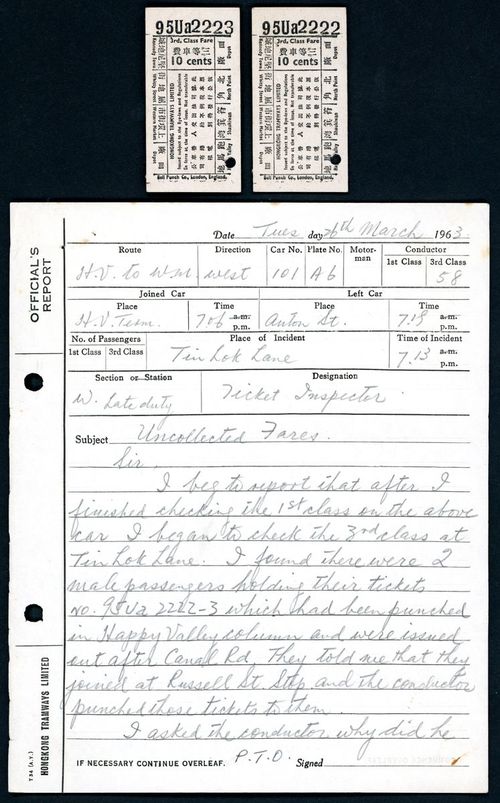 95Ua2223
3rd. Class Fare
三等車費
10 cents
HONGKONG TRAMWAYS LIMITED
Issued subject to the Byelaws and Regulations
in force at the time of issue. Not transferable
Kennedy Town
Whitty Street
Western Market
Depot
North Point
Shaukiwan
Happy Valley
Bell Punch Co., London, England.
95Ua2222
3rd. Class Fare
三等車費
10 cents
HONGKONG TRAMWAYS LIMITED
Issued subject to the Byelaws and Regulations
in force at the time of issue. Not transferable
Kennedy Town
Whitty Street
Western Market
Depot
North Point
Shaukiwan
Happy Valley
Bell Punch Co., London, England.
OFFICIAL'S
REPORT
Date Tues day 26th March 1963.
Route Direction Car No. Plate No. Motor-man Conductor
1st Class 3rd Class
H.V. to W.M. west 101 A6 58
Joined Car Left Car
Place Time Place Time
H.V. Term. 706 a.m. p.m. Anton St. 7.18 a.m. p.m.
No. of Passengers Place of Incident Time of Incident
1st Class 3rd Class Tin Lok Lane 7.13 a.m. p.m.
Section or Station Designation
W. Late duty Ticket Inspector
Subject Uncollected Fares.
Sir,
I beg to report that after I
finished checking the 1st class on the above
car I began to check the 3rd class at
Tin Lok Lane. I found there were 2
male passengers holding their tickets
no. 95Ua 2222-3 which had been punched
in Happy Valley column and were issued
out after Canal Rd. They told me that they
joined at Russell St. Stop and the conductor
punched those tickets to them.
I asked the conductor why did he
IF NECESSARY CONTINUE OVERLEAF. P.T.O. Signed
T34 (A.Y.) HONGKONG TRAMWAYS LIMITED